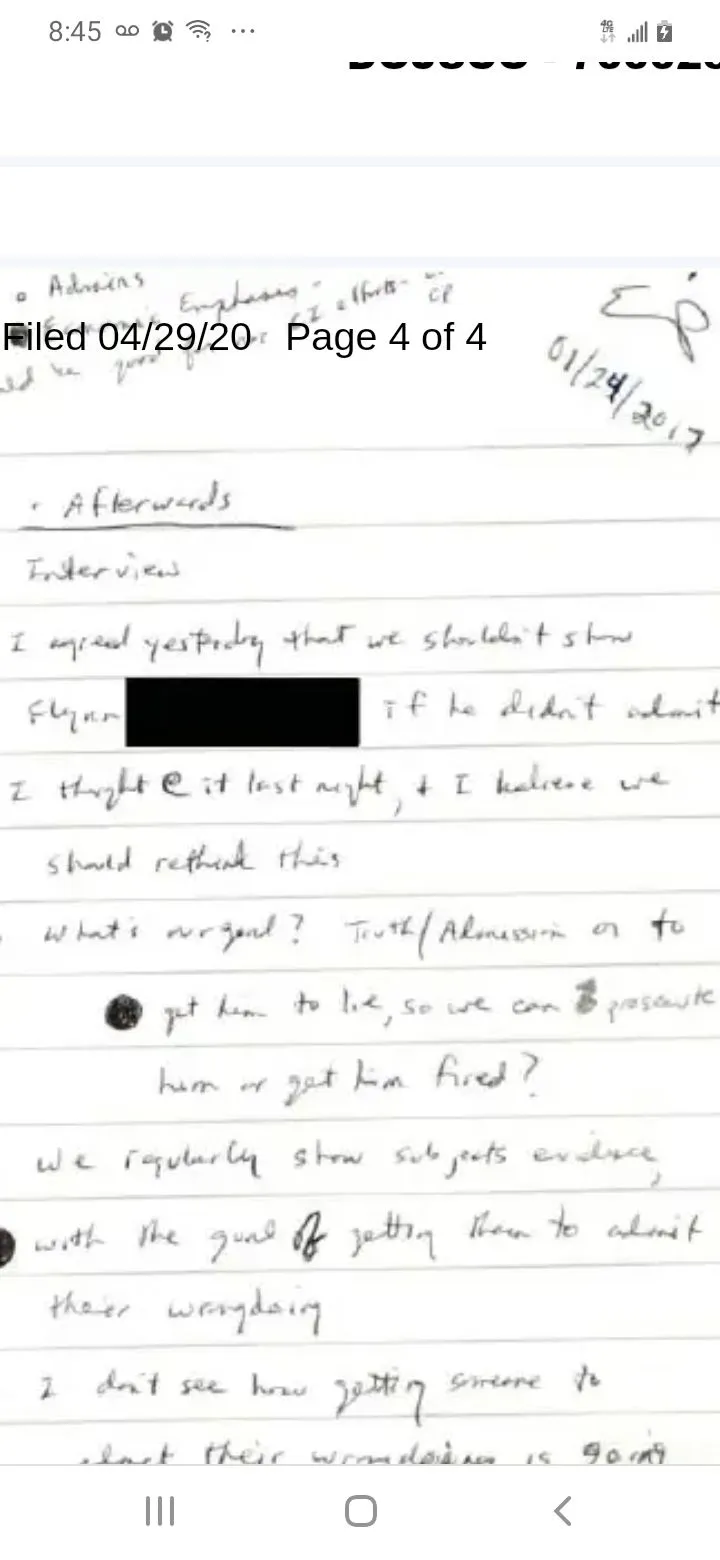 8:45
4G LTE
• Admins
Economic Emphases - CI efforts - CP
EP
Filed 04/29/20 Page 4 of 4
01/24/2017
• Afterwards
Interview
I agreed yesterday that we shouldn't show
Flynn if he didn't admit
I thought @ it last night, + I believe we
should rethink this
What's our goal? Truth/Admission or to
get him to lie, so we can prosecute
him or get him fired?
We regularly show subjects evidence,
with the goal of getting them to admit
their wrongdoing
I don't see how getting someone to
admit their wrongdoing is going